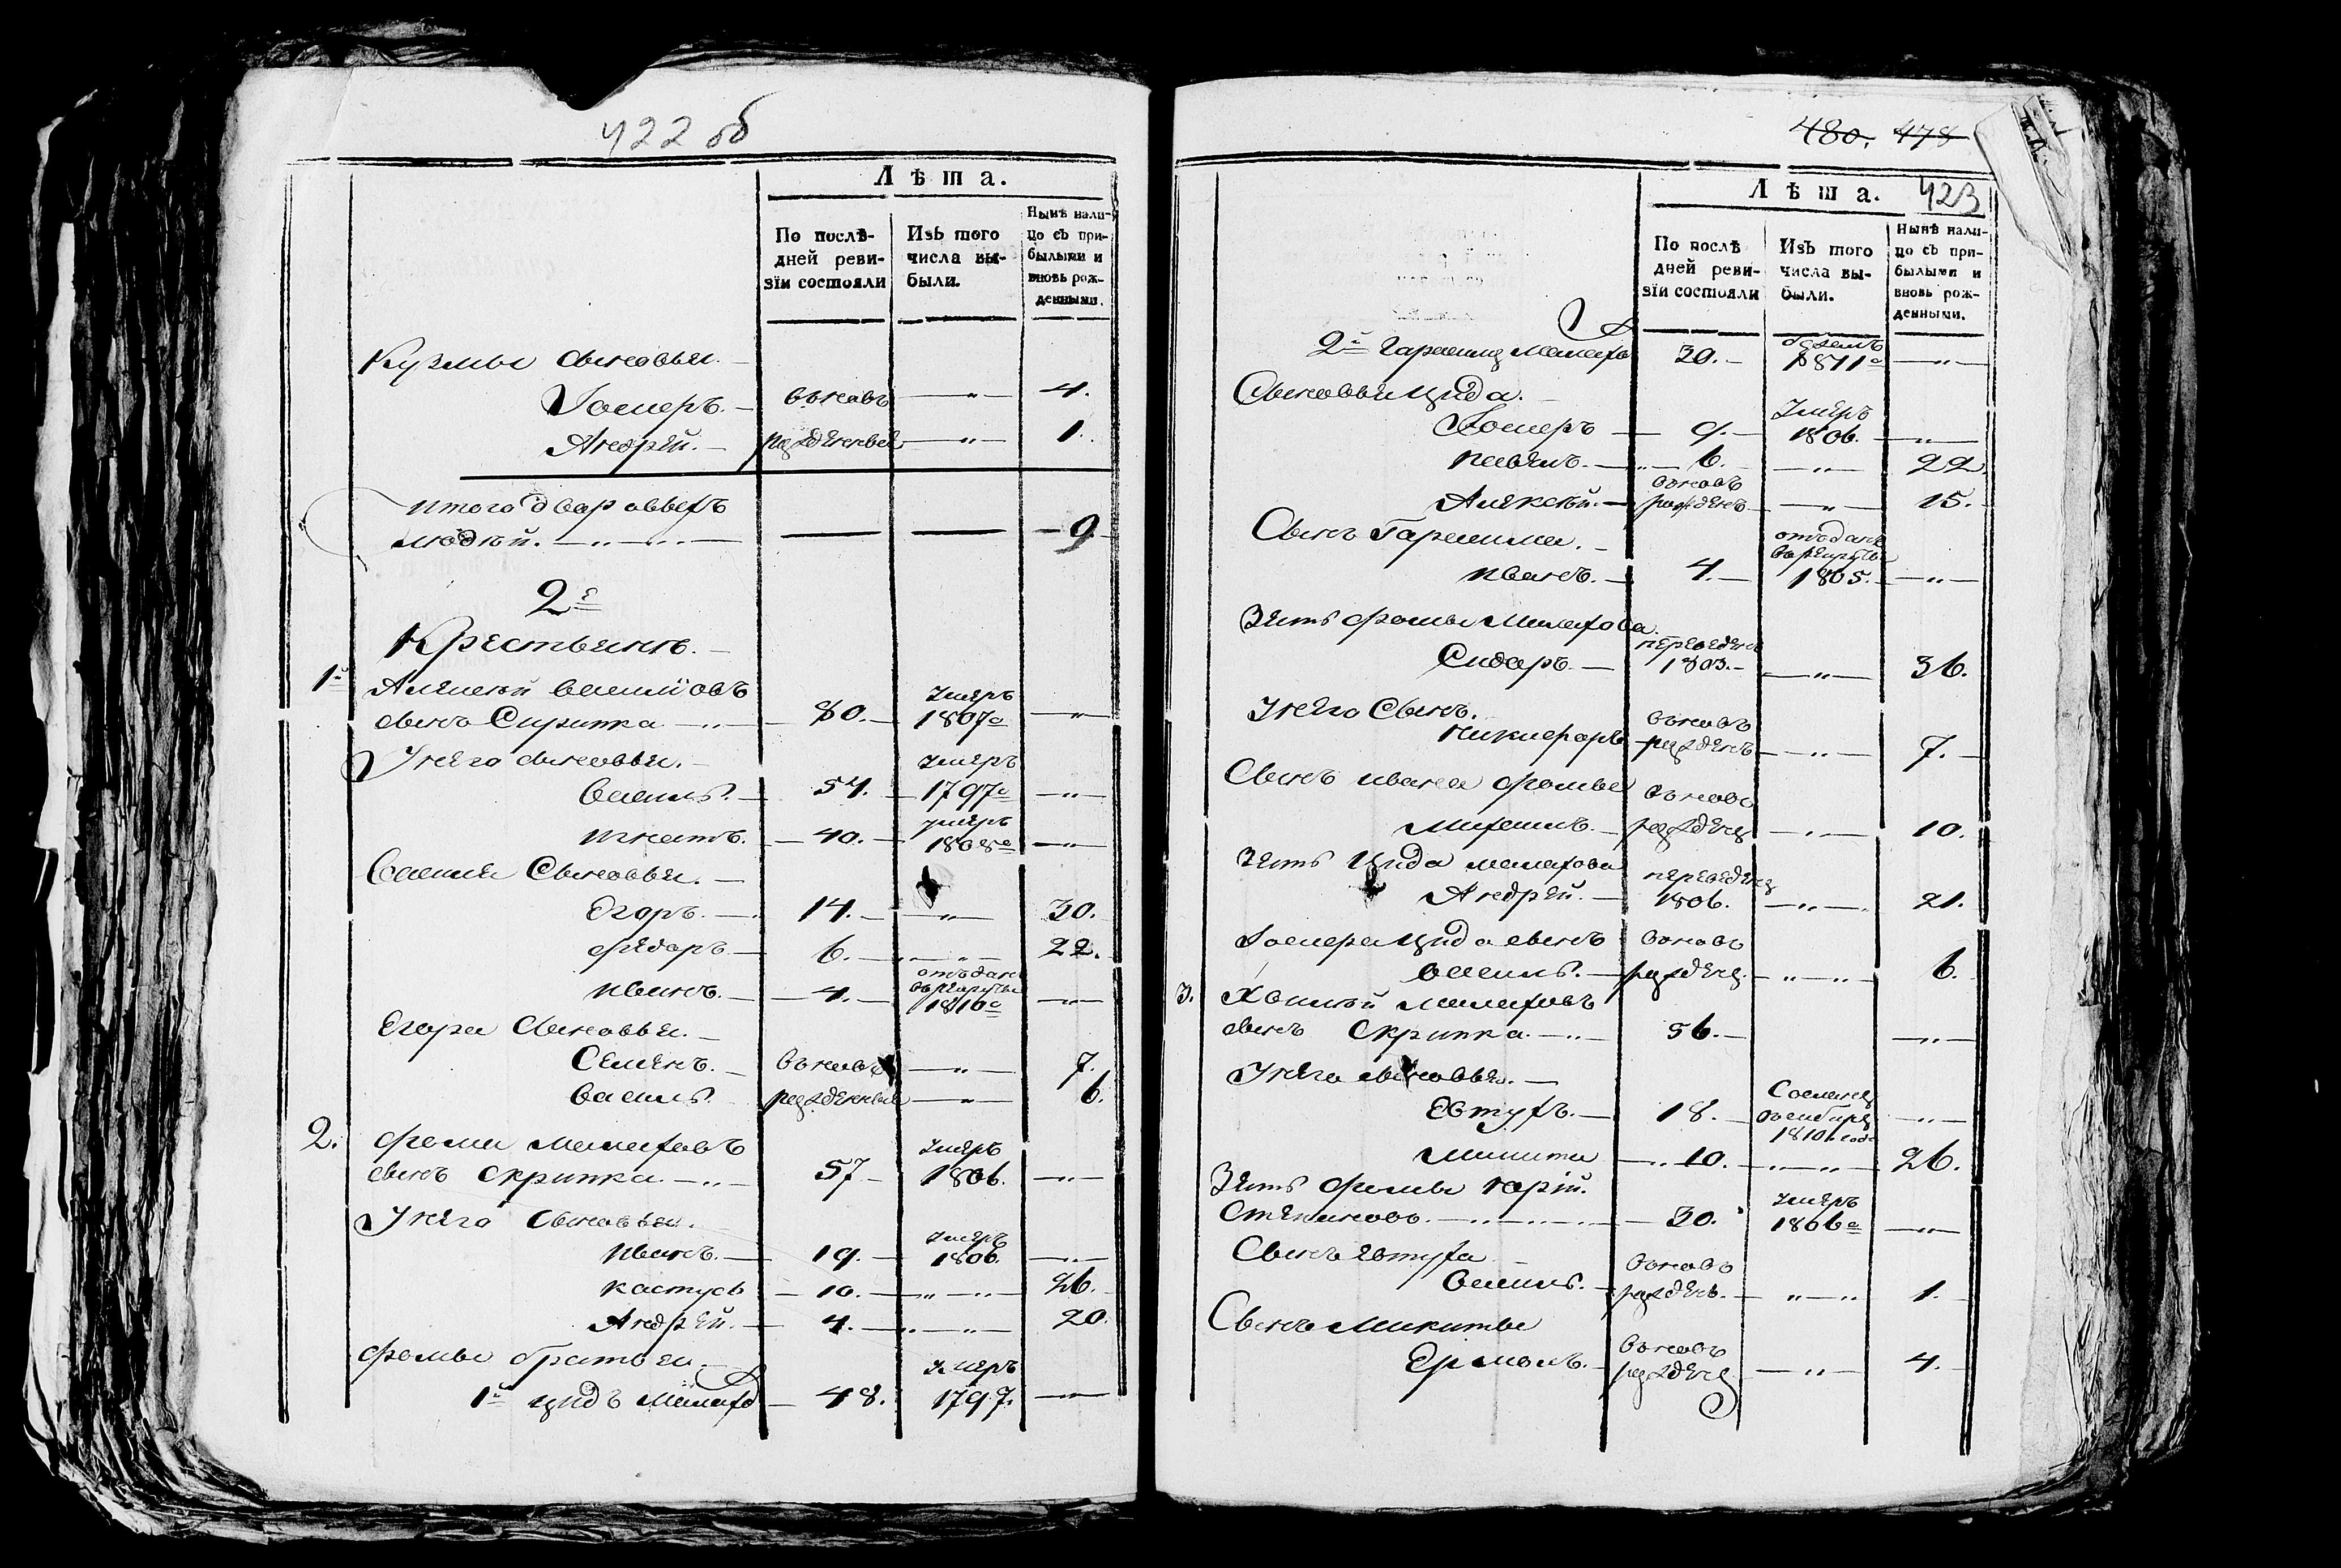 422 об
Лѣта.
По послѣдней ревизіи состояли
Изъ того числа выбыли.
Нынѣ налицо съ прибылыми и вновь рожденными.
Кузмы сыновья.
Іосиеръ. вновь — " — 4.
Андрей. рожденные — " — 1.
итого дваровыхъ
людѣй. — " — " — 9
2е
Крестьянъ.
1й Алексѣй Васильовъ
сынъ Скрипка — " — 80. умеръ 1807го — " —
У него сыновья.
Василь. — 54. — умеръ 1797го — " —
Игнатъ. — 40. — умеръ 1808го — " —
Василя Сыновья. —
Егоръ. — 14. — " — 30.
Федоръ — 6. — " — 22.
Иванъ. — 4. — отъданъ въ рекруты 1810го — " —
Егора Сыновья. —
Семенъ. — вновь — " — 7.
Василь. рожденные — " — 6.
2. Фома Малаховъ
сынъ Скрипка. — " — 57 — умеръ 1806. — " —
У него Сыновья.
Иванъ. — 19. — умеръ 1806. — " —
Кастусь — 10. — " — " — 26.
Андрей. — 4. — " — " — 20.
Фомы братья.
1й Малахо — 48. умеръ 1797. — " —
480. 478
423
Лѣта.
По послѣдней ревизіи состояли
Изъ того числа выбыли.
Нынѣ налицо съ прибылыми и вновь рожденными.
2й Малахо 30. — 1811го — " —
Сыновья
— 9. — умеръ 1806. — " —
Павелъ. — " — 6. — " — 22.
Алексѣй. — вновь рожденъ — " — 15.
Сынъ
Иванъ. — 4. — отъданъ въ рекруты 1805. — " —
Зять Фомы Малахова.
Сидаръ. — переведенъ 1803. — " — 36.
У него Сынъ.
Никифаръ вновь рожденъ — " — 7. —
Сынъ Ивана Фомы вновь
Михаилъ. — рожденъ — " — 10.
Зять Малахова
Андрей. — переведенъ 1806. — " — 21.
сынъ вновь
Василь. — рожденъ — " — " — 6.
3. Малаховъ
сынъ Скрипка. — " — 56. — — " —
У него сыновья. —
Евтухъ. — 18. — Сосланъ въ сибирь 1810го года — " —
Микита — " 10. — " — " — 26.
Зять Фомы Юрій.
Степановъ. — " — " — 30. умеръ 1806го — " —
Сынъ Евтуха
Василь. — вновь рожденъ. — " — " 1. —
Сынъ Микиты
Ермолъ. — вновь рожденъ — " — 4. —